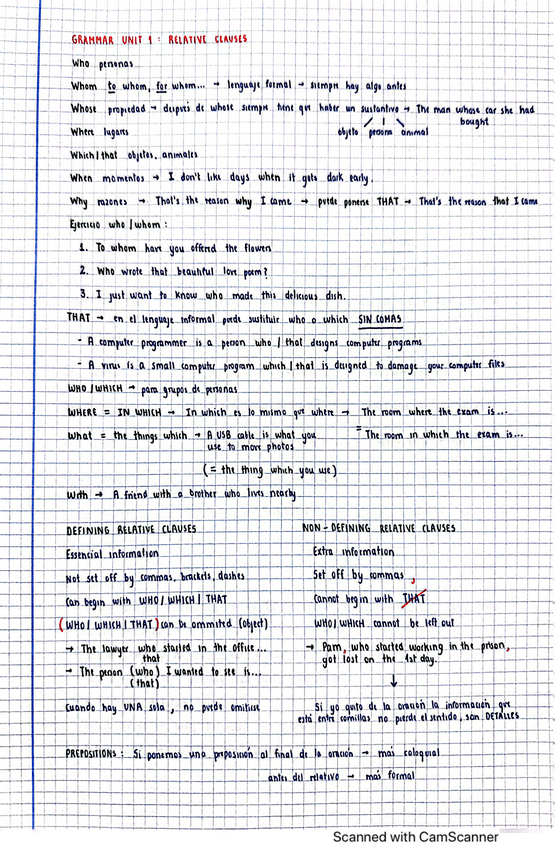 GRAMMAR UNIT 1: RELATIVE CLAUSES
Who personas
Whom to whom, for whom... → lenguaje formal → siempre hay algo antes
Whose propiedad → después de whose siempre tiene que haber un sustantivo → The man whose car she had bought
objeto persona animal
Where lugares
Which/that objetos, animales
When momentos → I don't like days when it gets dark early.
Why razones → That's the reason why I came → puede ponerse THAT → That's the reason that I came
Ejercicio who/whom:
1. To whom have you offered the flowers
2. Who wrote that beautiful love poem?
3. I just want to know who made this delicious dish.
THAT → en el lenguaje informal puede sustituir who o which SIN COMAS
- A computer programmer is a person who/that designs computer programs
- A virus is a small computer program which/that is designed to damage your computer files
WHO/WHICH → para grupos de personas
WHERE = IN WHICH → In which es lo mismo que where → The room where the exam is...
= The room in which the exam is...
What = the things which → A USB cable is what you use to move photos
(= the thing which you use)
With → A friend with a brother who lives nearby
DEFINING RELATIVE CLAUSES
Essencial information
Not set off by commas, brackets, dashes
Can begin with WHO/WHICH/THAT
(WHO/WHICH/THAT) can be ommited (object)
→ The lawyer who started in the office...
that
→ The person (who) I wanted to see is...
(that)
Cuando hay UNA sola, no puede omitirse
NON-DEFINING RELATIVE CLAUSES
Extra information
Set off by commas ,
Cannot begin with THAT
WHO/WHICH cannot be left out
→ Pam, who started working in the prison,
got lost on the 1st day.
↓
Si yo quito de la oración la información que
está entre comillas no pierde el sentido, son DETALLES
PREPOSITIONS: Si ponemos una preposición al final de la oración → más coloquial
antes del relativo → más formal
Scanned with CamScanner